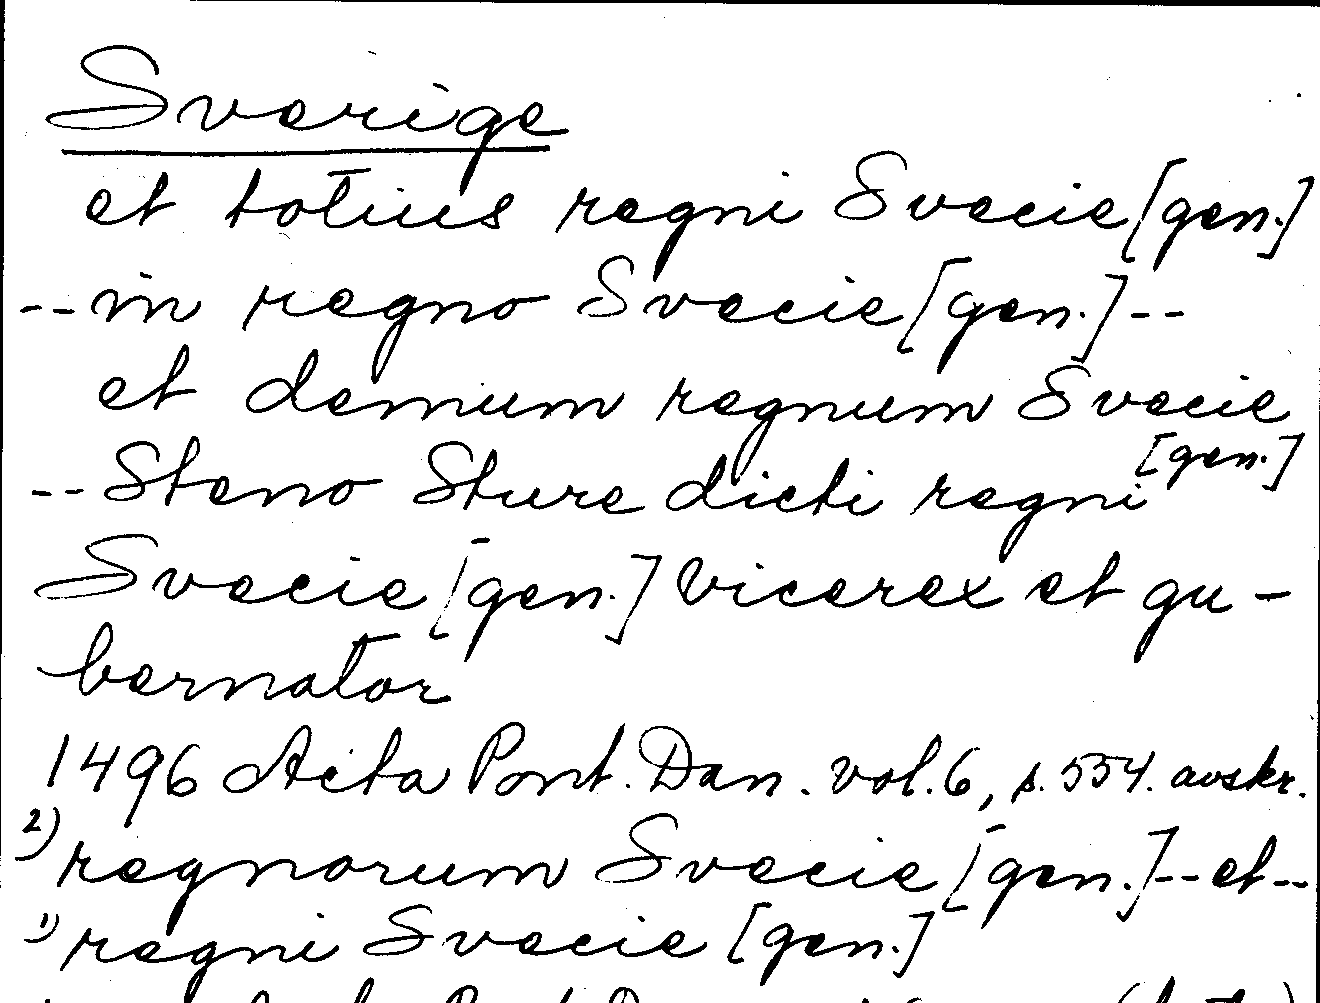 Sverige
et totius regni Svecie [gen.]
-- in regno Svecie [gen.] --
et demum regnum Svecie
[gen.]
-- Steno Sture dicti regni
Svecie [gen.] vicerex et gu-
bernator
1496 Acta Pont. Dan. vol. 6, s. 554. avskr.
2) regnorum Svecie [gen.] -- et --
1) regni Svecie [gen.]